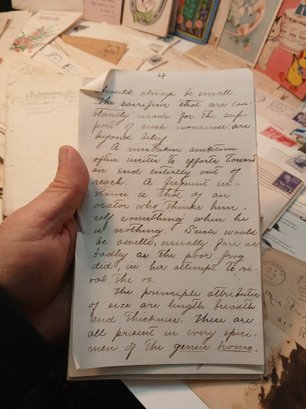 4
should always be small.
The sacrifice that are con-
stantly made for the sup-
port of such nonsense are
beyond belief
A mistaken ambition
often incites to efforts toward
an end entirely out of
reach. A frequent in-
stance is that of an
orator who thinks him-
self something when he
is nothing. Such would
be swells, usually fare as
badly as the poor frog
did, in her attempt to ri-
val the ox.
The principle attributes
of size are length breadth
and thickness. These are
all present in every speci-
men of the genus homo.